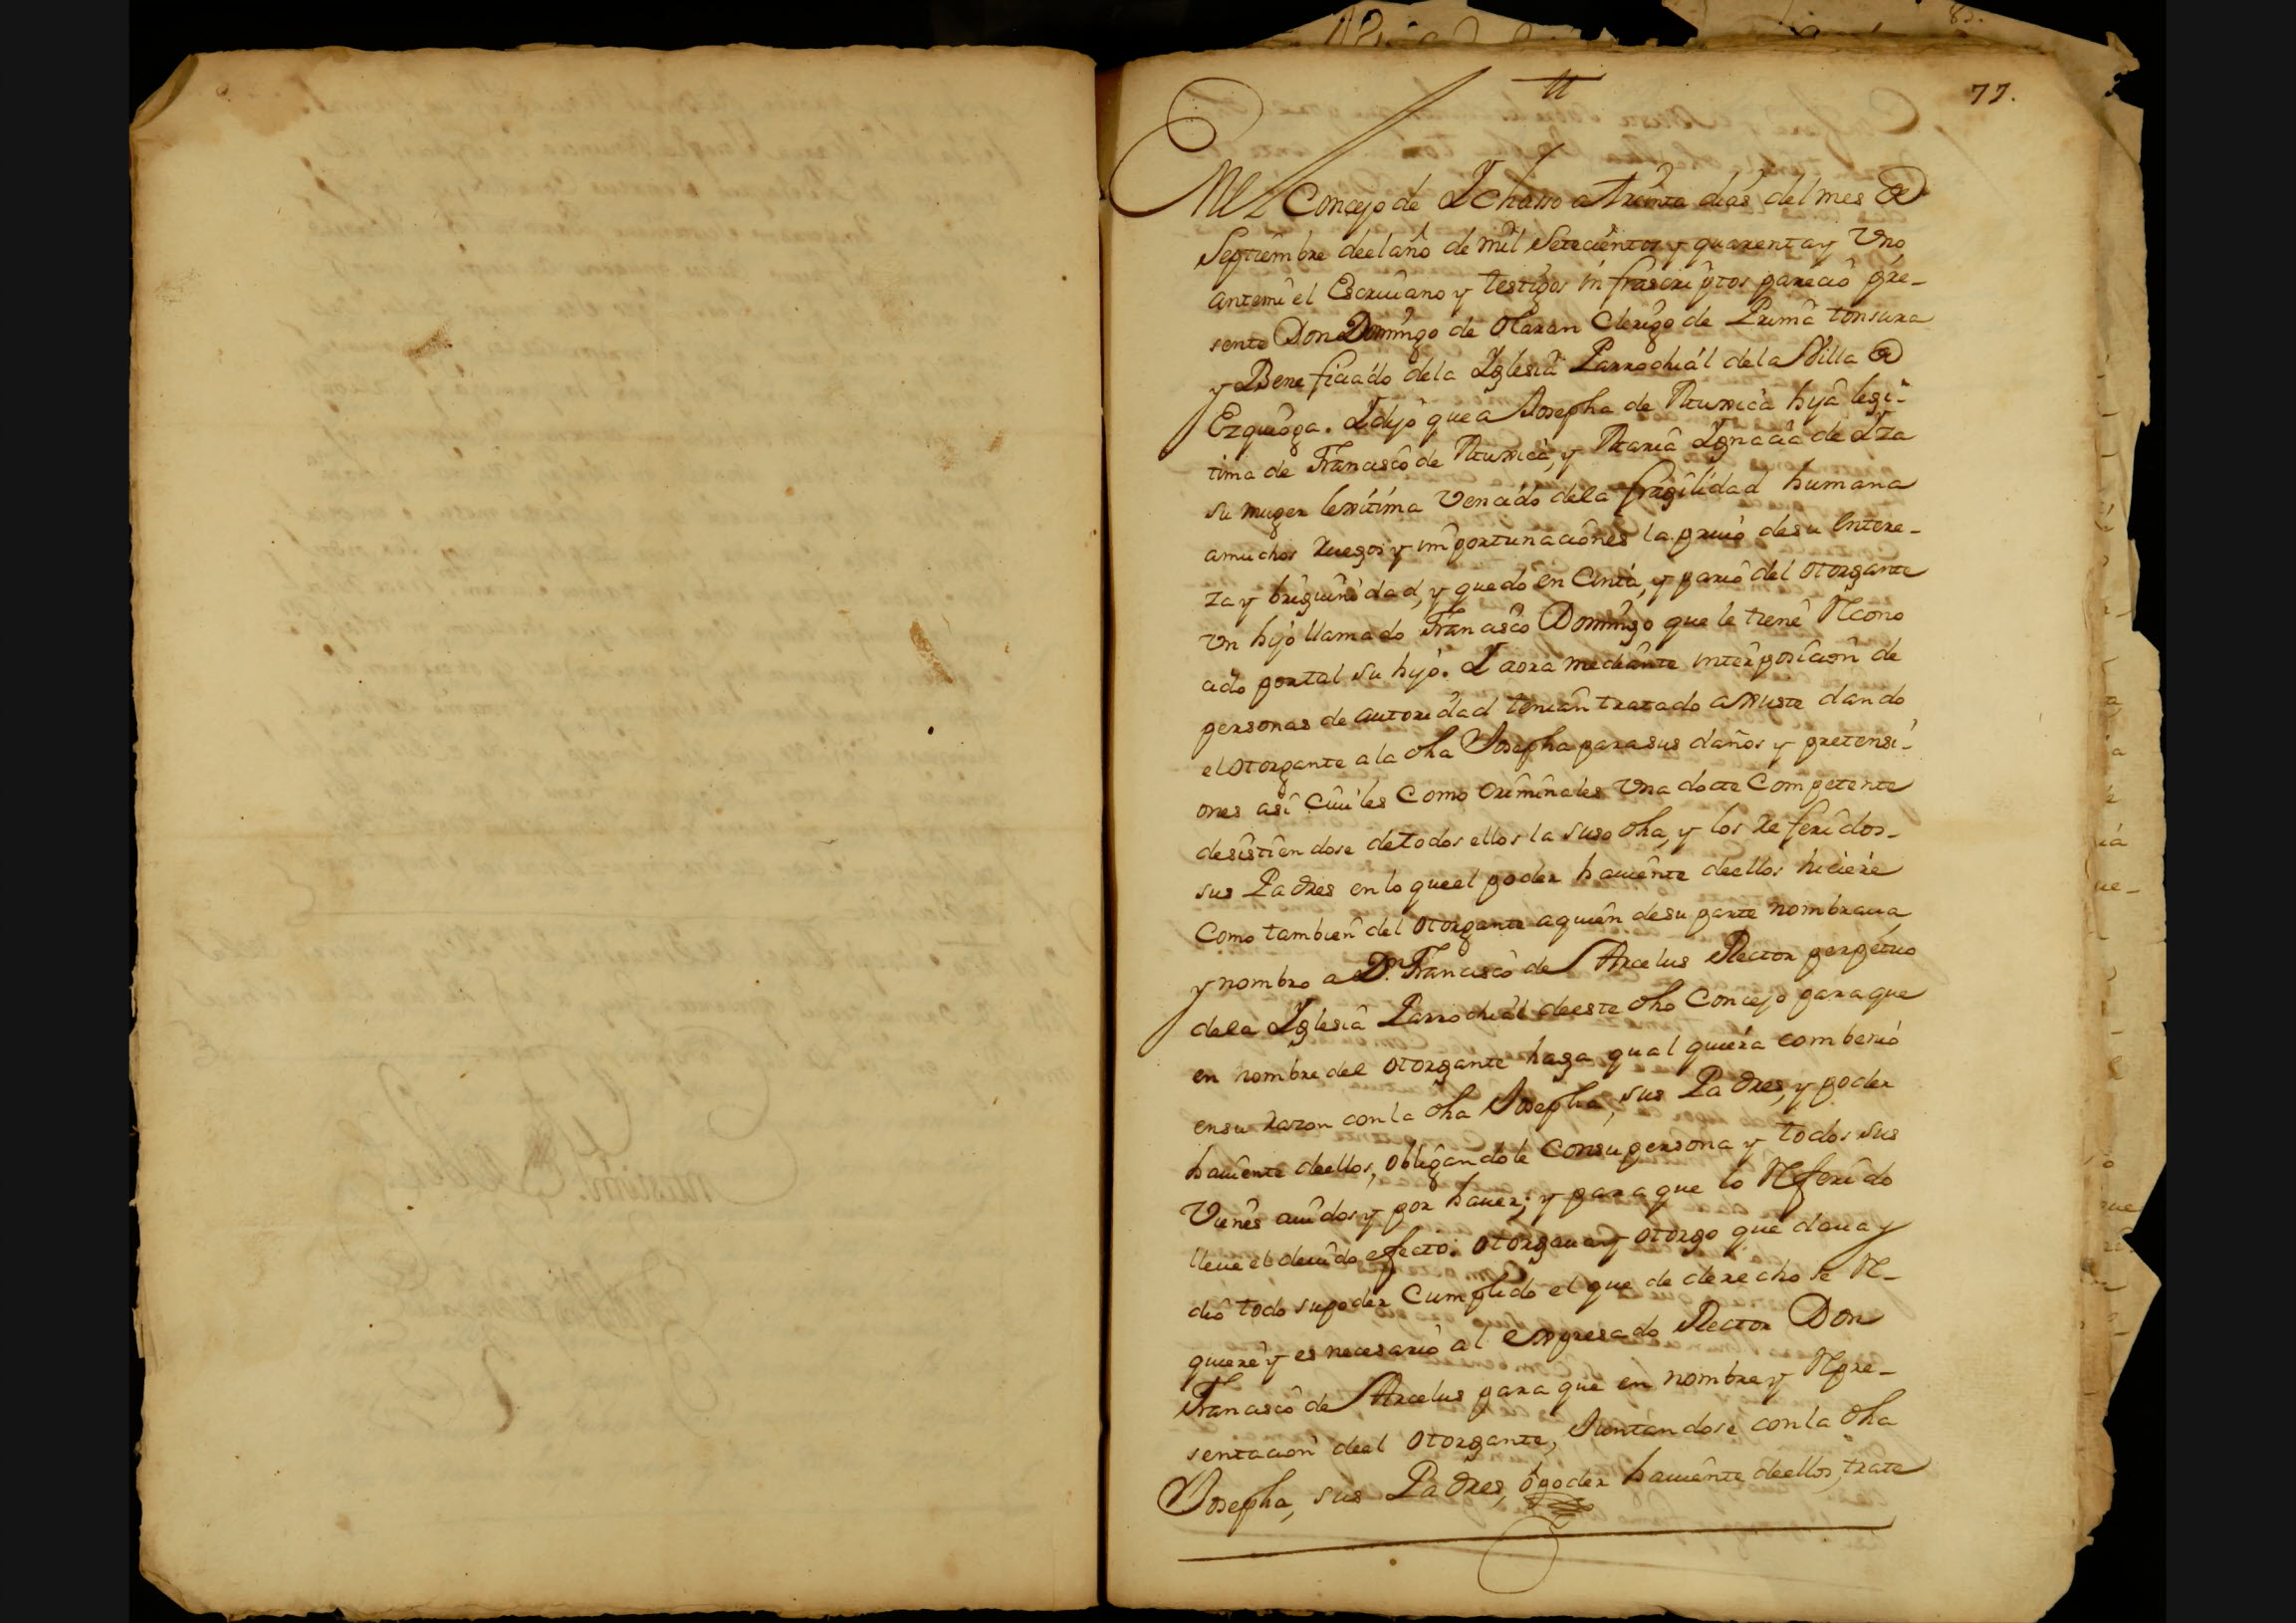 77.
En el Concejo de Ychaso a treinta dias del mes de
Septiembre deel año de mil Setecientos y quarenta y Uno
antemi el Escriuano y testigos infrascriptos parecio pre-
sente Don Domingo de Olaran Clerigo de Prima tonsura
y Beneficiado dela Yglesia Parrochial dela Villa de
Ezquioga. Y dijo que a Josepha de Muxica hija legi-
tima de Francisco de Muxica, y Maria Ygnacia de Yza
su muger lexitima Vencido dela fragilidad humana
amuchos ruegos y importunaciones la priuò desu Entere-
za y birguinidad, y quedò en Cinta, y pariò del otorgante
Vn hijo llamado Francisco Domingo que le tiene Recono
cido portal su hijo. Y aora mediante interposicion de
personas de autoridad tenian tratado axuste dando
el otorgante ala dha Josepha para sus daños y pretensi-
ones asi Ciuiles Como Criminales Vna dote Competente
desistiendose detodos ellos la suso dha, y los referidos-
sus Padres en lo que el poder hauiente deellos hiciere
Como tambien del otorgante aquien desu parte nombraua
y nombro a Dn. Francisco de Arcelus Rector perpetuo
dela Yglesia Parrochial deeste dho Concejo paraque
en nombre del otorgante haga qual quiera combenio
ensu razon con la dha Josepha, sus Padres, y poder
hauiente deellos, obligandole Consu persona y todos sus
Vienes auidos y por hauer; y para que lo Referido
lleue el deuido efecto: otorgaua y otorgo que daua y
dio todo supoder Cumplido el que de derecho se Re-
quiere y es necesario al expresado Rector Don
Francisco de Arcelus para que en nombre y Repre-
sentacion deel otorgante, Juntandose con la dha
Josepha, sus Padres, ò poder hauiente deellos, trate